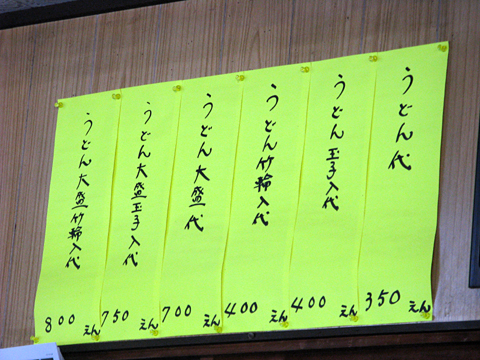 うどん代
350えん
うどん玉子入代
400えん
うどん竹輪入代
400えん
うどん大盛代
700えん
うどん大盛玉子入代
750えん
うどん大盛竹輪入代
800えん